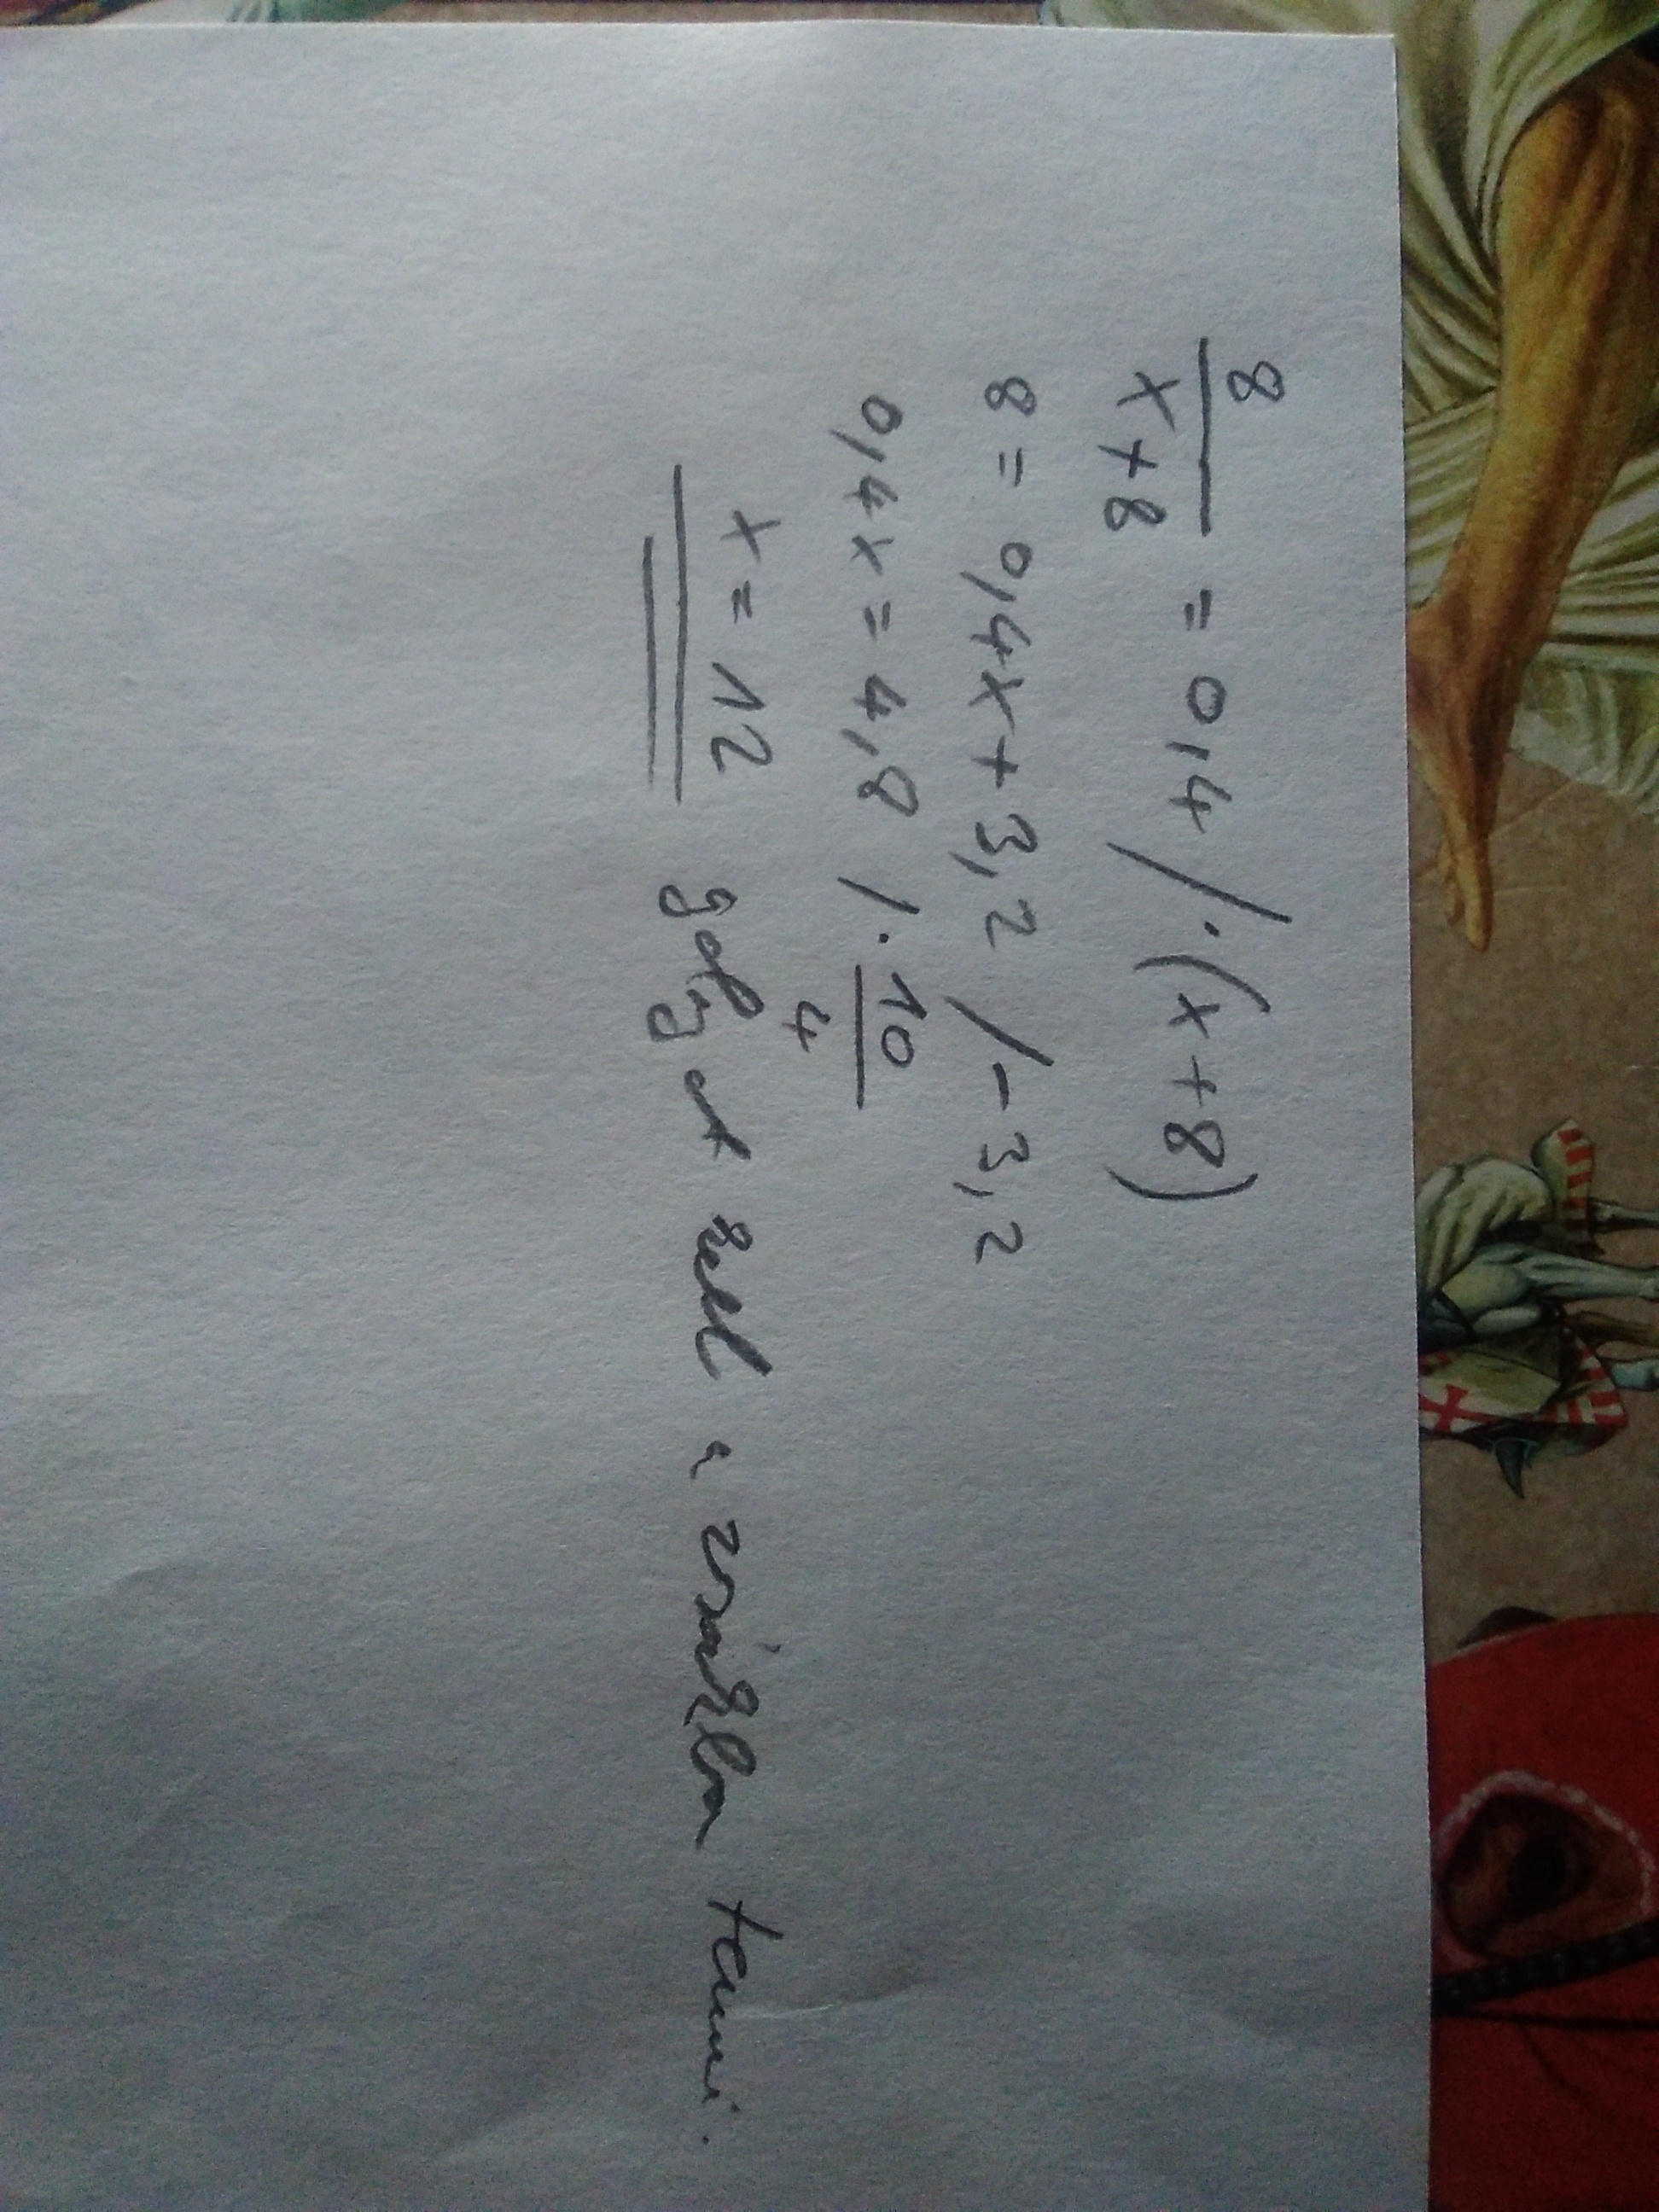 8/(x+8) = 0,4 /·(x+8)
8 = 0,4x + 3,2 /-3,2
0,4x = 4,8 /· 10/4
x = 12 golyót kell a zsákba tenni.